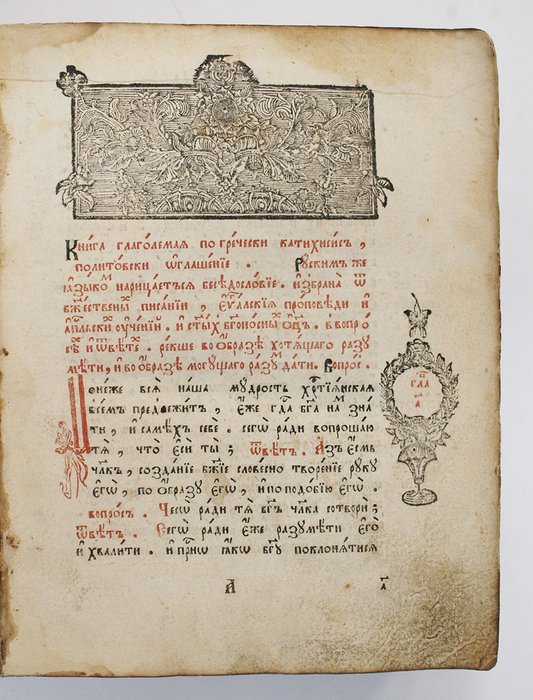 Кни́га глаго́лемая по гре́чески катихи́сисъ,
полито́вски ѡ҆глаше́нїе. Ру́скимъ же
ꙗ҆зы́комъ нарица́етъсѧ бесѣдосло́вїе. и҆збра́на ѿ
бж҃е́ственыхъ писа́нїи, є҆ѵⷢ҇альскїѧ про́повѣди и҆
а҆пⷭ҇льски оу҆че́нїи. и҆ ст҃ы́хъ бг҃оно́сныхъ ѻ҆ц҃ъ. в вопро́
сѣ и҆ ѿвѣ́те. ре́кше во ѻ҆́бразѣ хотѧ́щаго разу
мѣ́ти, и҆ во ѻ҆́бразѣ могу́щаго ра́зумъ да́ти. Вопро́съ.
Поне́же всѧ̀ на́ша му́дрость хрⷭ҇тїѧ́нскаѧ
всѣ́мъ предлежи́тъ, є҆́же гдⷭ҇а бг҃а на́мъ зна́
ти, и҆ сами́хъ себѐ. сегѡ̀ ра́ди вопроша́ю
тѧ̀, что̀ є҆сѝ ты̀; Ѿвѣ́тъ. А҆́зъ є҆́смь
чл҃къ, созда́нїе бж҃їе слове́сно творе́нїе руку̀
є҆гѡ̀, по ѻ҆́бразу є҆гѡ̀, и҆ по подо́бїю є҆гѡ̀.
вопро́съ. Чесѡ̀ ра́ди тѧ̀ бг҃ъ чл҃ка сотворѝ;
ѿвѣ́тъ. Сегѡ̀ ра́ди є҆́же разумѣ́ти є҆го̀
и҆ хвали́ти. и҆ при́снѡ ꙗ҆́кѡ бг҃у поклонѧ́тисѧ
гла
а҃
А
а҃